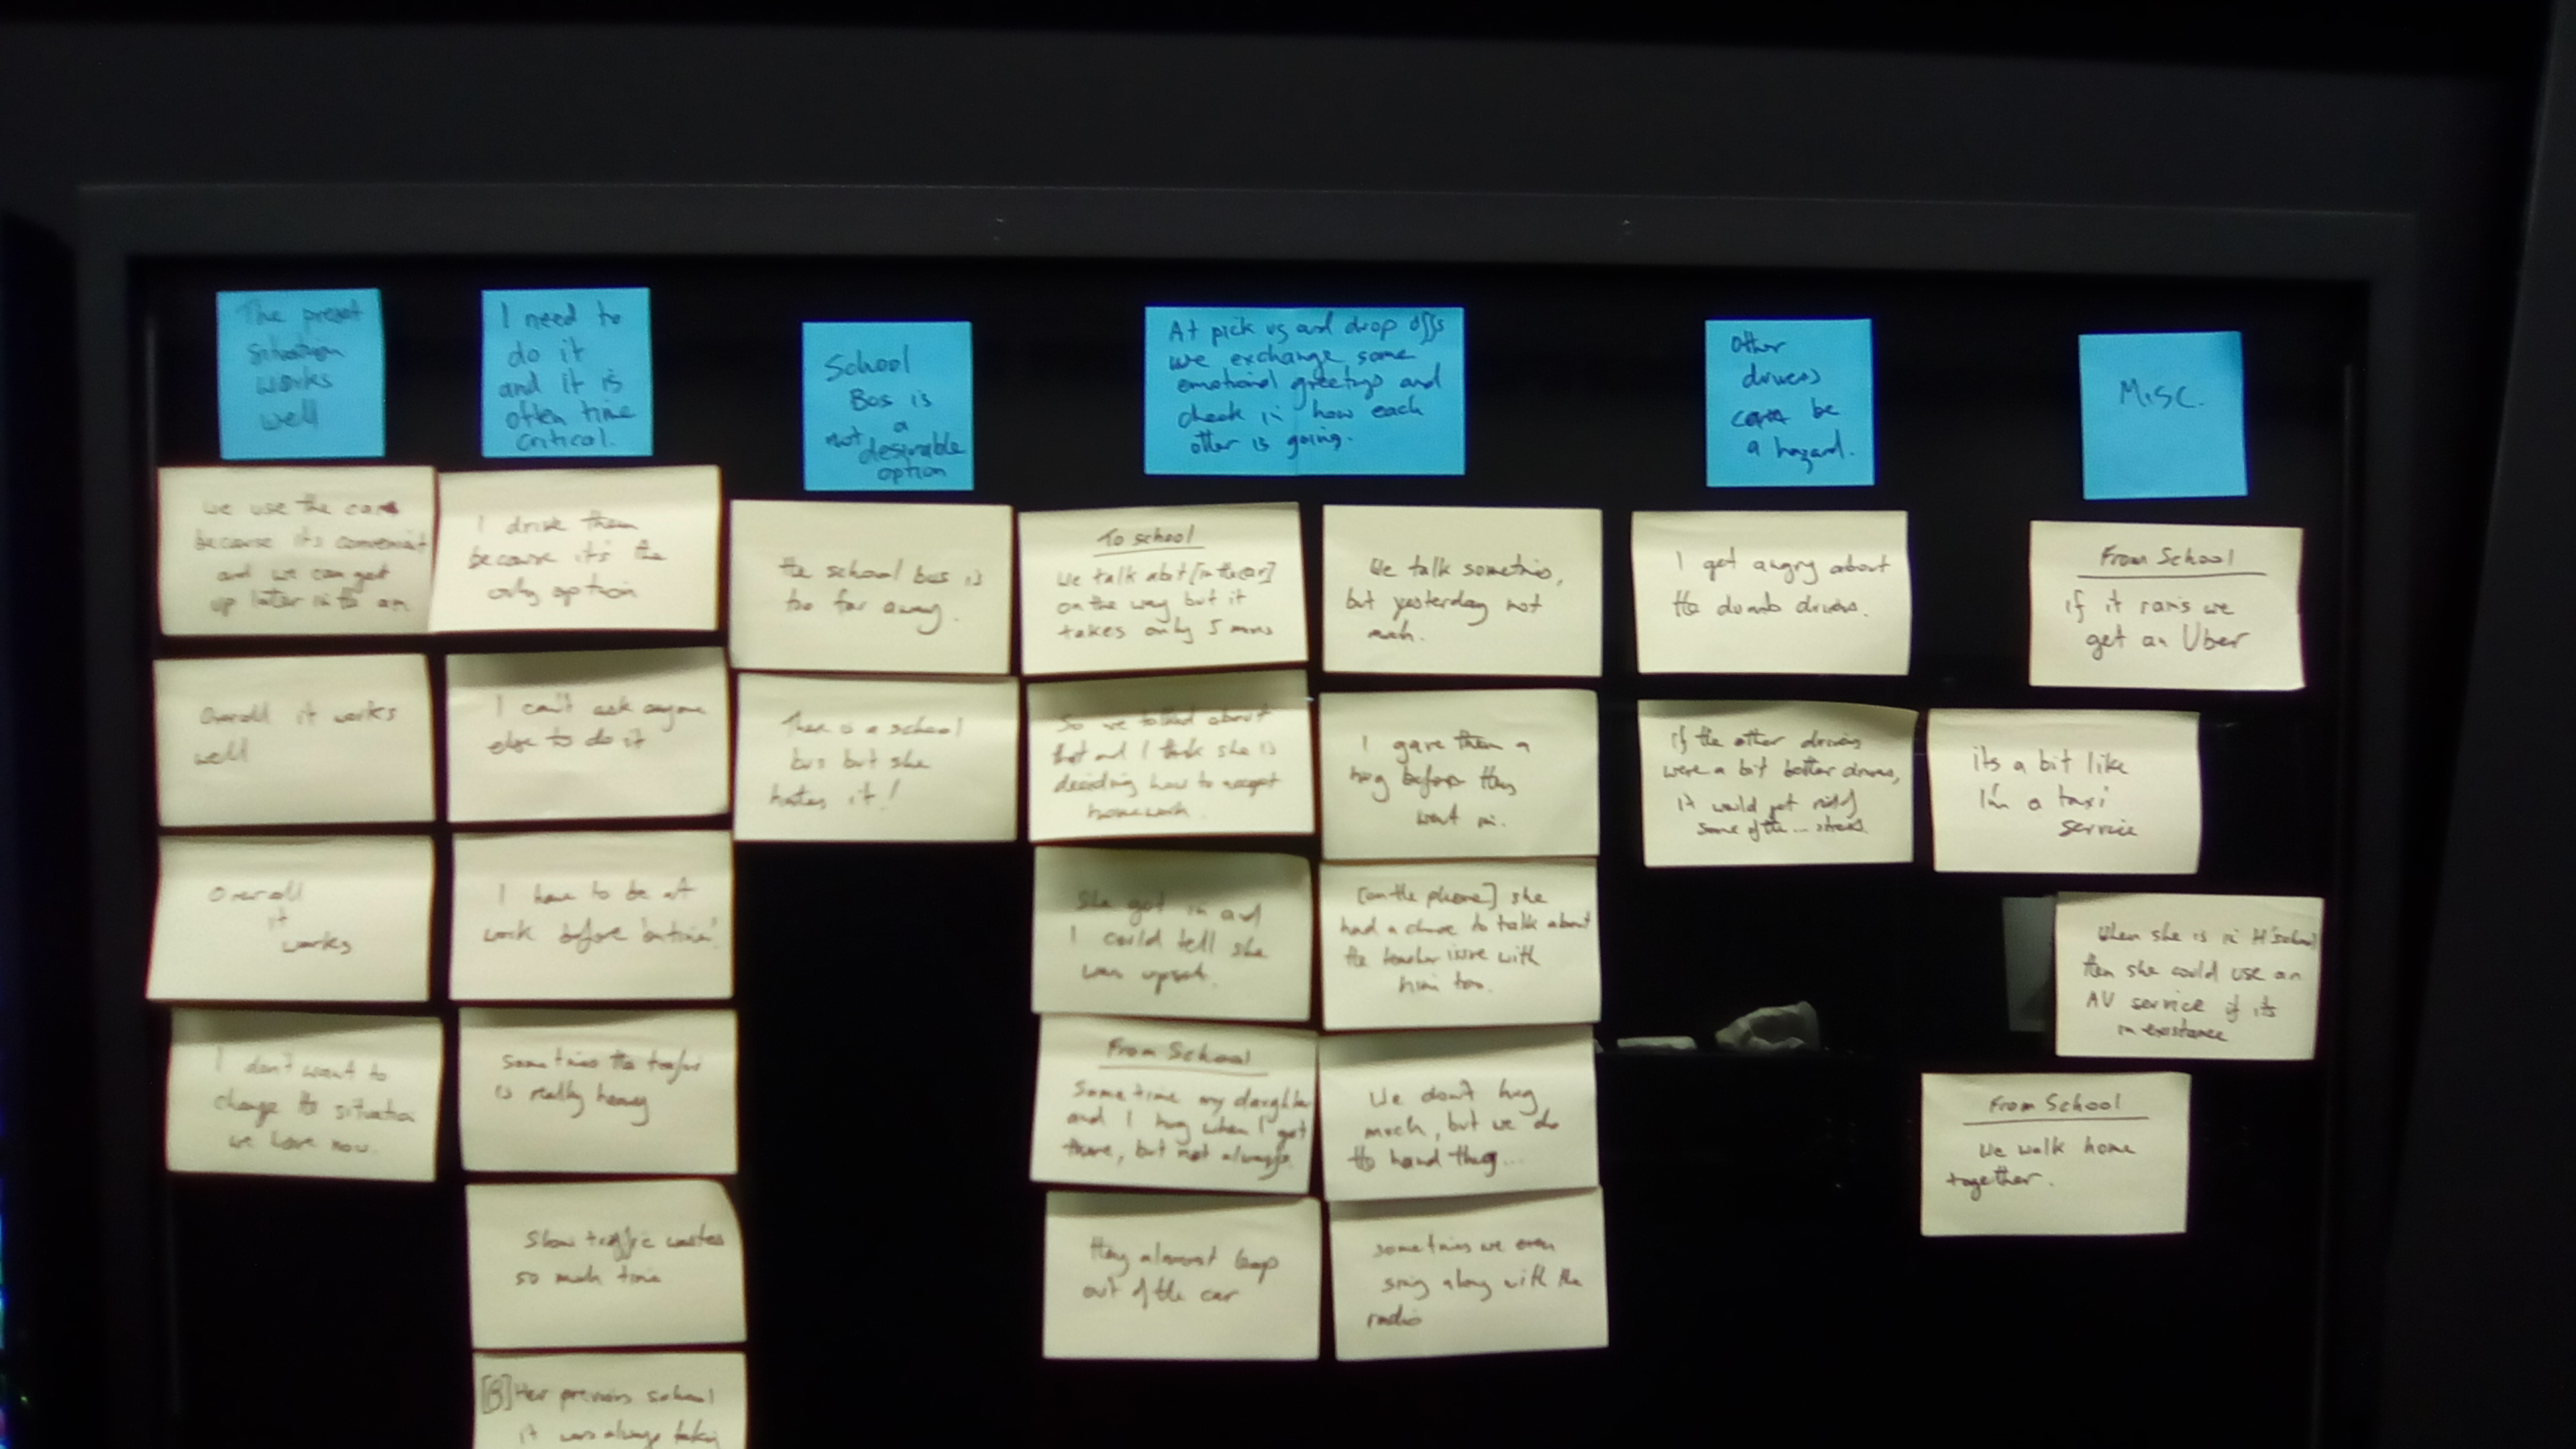 The present
situation
works
well
we use the car
because its convenient
and we can get
up later into an
Overall it works
well
Overall
it
works
I don't want to
change the situation
we have now.
I need to
do it
and it is
often time
critical.
I drive them
because it's the
only option
I can't ask anyone
else to do it
I have to be at
work before
sometimes the
is really heavy
Slow traffic wastes
so much time
[B] Her previous school
it was always taking
School
Bus is
a
not desirable
option
the school bus is
too far away.
There is a school
bus but she
hates it!
At pick ups and drop offs
we exchange some
emotional greetings and
check in how each
other is going.
To school
We talk abt [in the car]
on the way but it
takes only 5 mins
So we talked about
that and I think she is
deciding how to accept
homework.
She got in and
I could tell she
was upset.
From School
Sometime my daughter
and I hug when I get
there, but not always.
they almost leap
out of the car
We talk sometimes,
but yesterday not
much.
I gave them a
hug before they
went in.
[on the phone] she
had a chance to talk about
the teacher issue with
him too.
We don't hug
much, but we do
the hand thing...
sometimes we even
sing along with the
radio
Other
drivers
can be
a hazard.
I get angry about
the dumb drivers.
if the other drivers
were a bit better drivers,
it would get rid of
some of the... stress.
Misc.
From School
if it rains we
get an Uber
its a bit like
I'm a taxi
service
When she is in H'school
then she could use an
AV service if its
in existance
From School
We walk home
together.